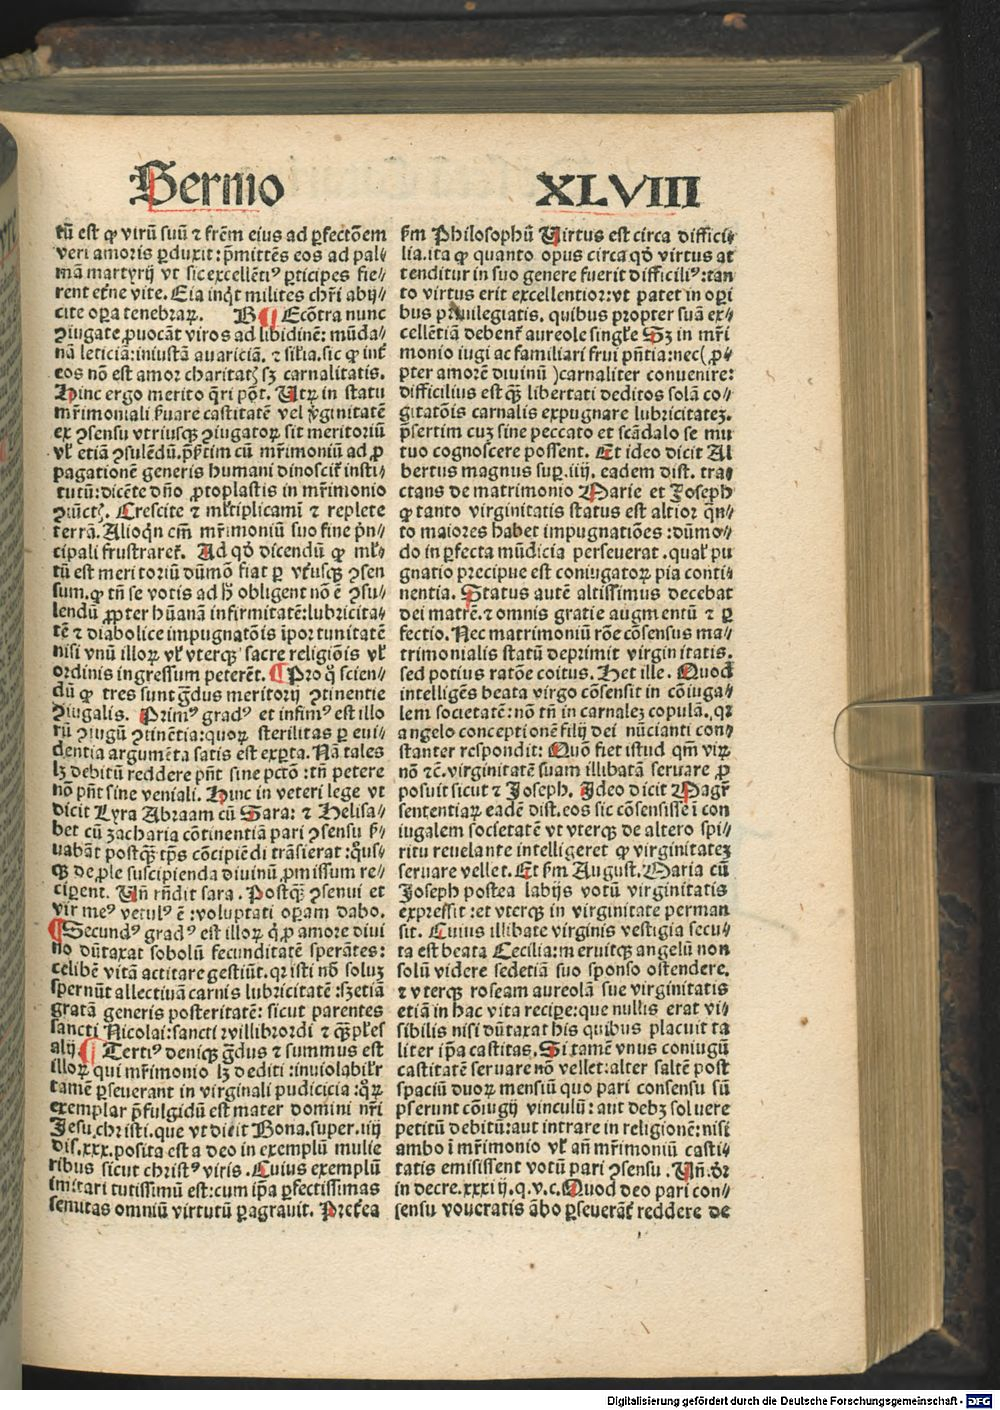 Sermo XLVIII
tū est ꝙ virū suū ⁊ frēm eius ad ꝑfectōem
veri amoris ꝑduxit: p̄mittēs eos ad pal⸗
mā martyrij vt sic excellētiꝰ ꝑticipes fie⸗
rent et̓ne vite. Eia inq̇t milites chr̄i abij⸗
cite oꝑa tenebraꝝ. B ¶ Ecōtra nunc
ꝯiugate ꝓuocāt viros ad libidinē: mūda⸗
nā leticiā: iniustā auariciā. ⁊ sil̓ia. sic ꝙ int̓
eos nō est amor charitatꝭ sꝫ carnalitatis.
Hinc ergo merito q̄ri pōt. Utꝝ in statu
mr̄imoniali s̓uare castitatē vel v̓ginitatē
ex ꝯsensu vtriusqꝫ ꝯiugatoꝝ sit meritoriū
vl̓ etiā ꝯsulēdū. p̄s̓tim cū mr̄imoniū ad ꝓ
pagationē generis humani dinoscit̓ insti⸗
tutū: dicēte dn̄o ꝓtoplastis in mr̄imonio
ꝯiūctꝭ. Crescite ⁊ ml̓tiplicamī ⁊ replete
terrā. Alioq̇n em̄ mr̄imoniū suo fine p̓n⸗
cipali frustraret̓. Ad qd̓ dicendū ꝙ ml̓⸗
tū est meritoriū dūmō fiat ꝑ vt̓usqꝫ ꝯsen
sum. ꝙ tn̄ se votis ad h̓ obligent nō ē ꝯsu⸗
lendū ꝓpter hūanā infirmitatē: lubricita⸗
tē ⁊ diabolice impugnatōis īportunitatē
nisi vnū illoꝝ vl̓ vterqꝫ sacre religiōis vl̓
ordinis ingressum peterēt. ¶ Pro q̄ scien⸗
dū ꝙ tres sunt gr̄dus meritorij ꝯtinentie
ꝯiugalis. Primꝰ gradꝰ et infimꝰ est illo
rū ꝯiugū ꝯtinētia: quoꝝ sterilitas ꝑ eui⸗
dentia argumēta satis est exꝑta. Nā tales
lꝫ debitū reddere pn̄t sine pctō: tn̄ petere
nō pn̄t sine veniali. Hinc in veteri lege vt
dicit Lyra Abraam cū Sara: ⁊ Helisa⸗
bet cū zacharia cōtinentiā pari ꝯsensu s̓⸗
uabāt postq̄ꝫ tp̄s cōcipiēdi trāsierat: qͦus⸗
qꝫ de ꝓle suscipienda diuinū ꝓmissum re⸗
ciꝑent. Un̄ rn̄dit sara. Postq̄ꝫ ꝯsenui et
vir meꝰ vetulꝰ ē: voluptati oꝑam dabo.
¶ Secundꝰ gradꝰ est illoꝝ q̇ ꝓ amore diui
no dūtaxat sobolū fecunditatē sperātes:
celibē vitā actitare gestiūt. qꝛ isti nō soluꝫ
spernūt allectiuā carnis lubricitatē: sꝫ etiā
gratā generis posteritatē: sicut parentes
sancti Nicolai: sancti willibrordi ⁊ q̄ꝫpl̓es
alij. ¶ Tertiꝰ deniqꝫ gr̄dus ⁊ summus est
illoꝝ qui mr̄imonio lꝫ dediti: inuiolabil̓r
tamē ꝑseuerant in virginali pudicicia: qͦꝝ
exemplar p̄fulgidū est mater domini nr̄i
Jesu christi. que vt dicit Bona. super. iiij
dis. xxx. posita est a deo in exemplū mulie
ribus sicut christꝰ viris. Cuius exemplū
imitari tutissimū est: cum ip̄a ꝑfectissimas
semitas omniū virtutū ꝑagrauit. Pret̓ea
s̓m Philosophū Uirtus est circa diffici⸗
lia. ita ꝙ quanto opus circa qd̓ virtus at
tenditur in suo genere fuerit difficiliꝰ: tan
to virtus erit excellentior: vt patet in oꝑi
bus priuilegiatis. quibus propter suā ex⸗
cellētiā debent̓ aureole singl̓e Sꝫ in mr̄i
monio iugi ac familiari frui pn̄tia: nec (ꝓ⸗
pter amorē diuinū) carnaliter conuenire:
difficilius est q̄ꝫ libertati deditos solā co⸗
gitatōis carnalis expugnare lubricitateꝫ.
p̄sertim cuꝫ sine peccato et scādalo se mu
tuo cognoscere possent. Et ideo dicit Al
bertus magnus suꝑ. iiij. eadem dist. tra⸗
ctans de matrimonio Marie et Joseph
ꝙ tanto virginitatis status est altior q̄n⸗
to maiores habet impugnatiōes: dūmo⸗
do in ꝑfecta mūdicia perseuerat. qual̓ pu
gnatio precipue est coniugatoꝝ pia conti⸗
nentia. Status autē altissimus decebat
dei matrē. ⁊ omnis gratie augmentū ⁊ ꝑ
fectio. Nec matrimoniū rōe cōsensus ma⸗
trimonialis statū deprimit virginitatis.
sed potius ratōe coitus. Hec ille. Quod
intelligēs beata virgo cōsensit in cōiuga⸗
lem societatē: nō tn̄ in carnaleꝫ copulā. qꝛ
angelo conceptionē filij dei nūcianti con⸗
stanter respondit: Quō fiet istud qm̄ viꝝ
nō ⁊c̄. virginitatē suam illibatā seruare ꝓ
posuit sicut ⁊ Joseph. Ideo dicit Magr̄
sententiaꝝ eadē dist. eos sic cōsensisse ī con
iugalem societatē vt vterqꝫ de altero spi⸗
ritu reuelante intelligeret ꝙ virginitateꝫ
seruare vellet. Et s̓m August. Maria cū
Joseph postea labijs votū virginitatis
expressit: et vterqꝫ in virginitate perman
sit. Cuius illibate virginis vestigia secu⸗
ta est beata Cecilia: meruitqꝫ angelū non
solū videre sedētiā suo sponso ostendere.
⁊ vterqꝫ roseam aureolā sue virginitatis
etiā in hac vita reciꝑe: que nullis erat vi⸗
sibilis nisi dūtaxat his quibus placuit ta
liter ip̄a castitas. Si tamē vnus coniugū
castitatē seruare nō vellet: alter saltē post
spaciū duoꝝ mensiū quo pari consensu sū
pserunt cōiugij vinculū: aut debꝫ soluere
petitū debitū: aut intrare in religionē: nisi
ambo ī mr̄imonio vl̓ an̄ mr̄imoniū casti⸗
tatis emisissent votū pari ꝯsensu. Un̄. dr̄
in decre. xxxiij. q. v. c. Quod deo pari con⸗
sensu voucratis ābo ꝑseuerāt̓ reddere de
Digitalisierung gefördert durch die Deutsche Forschungsgemeinschaft - DFG